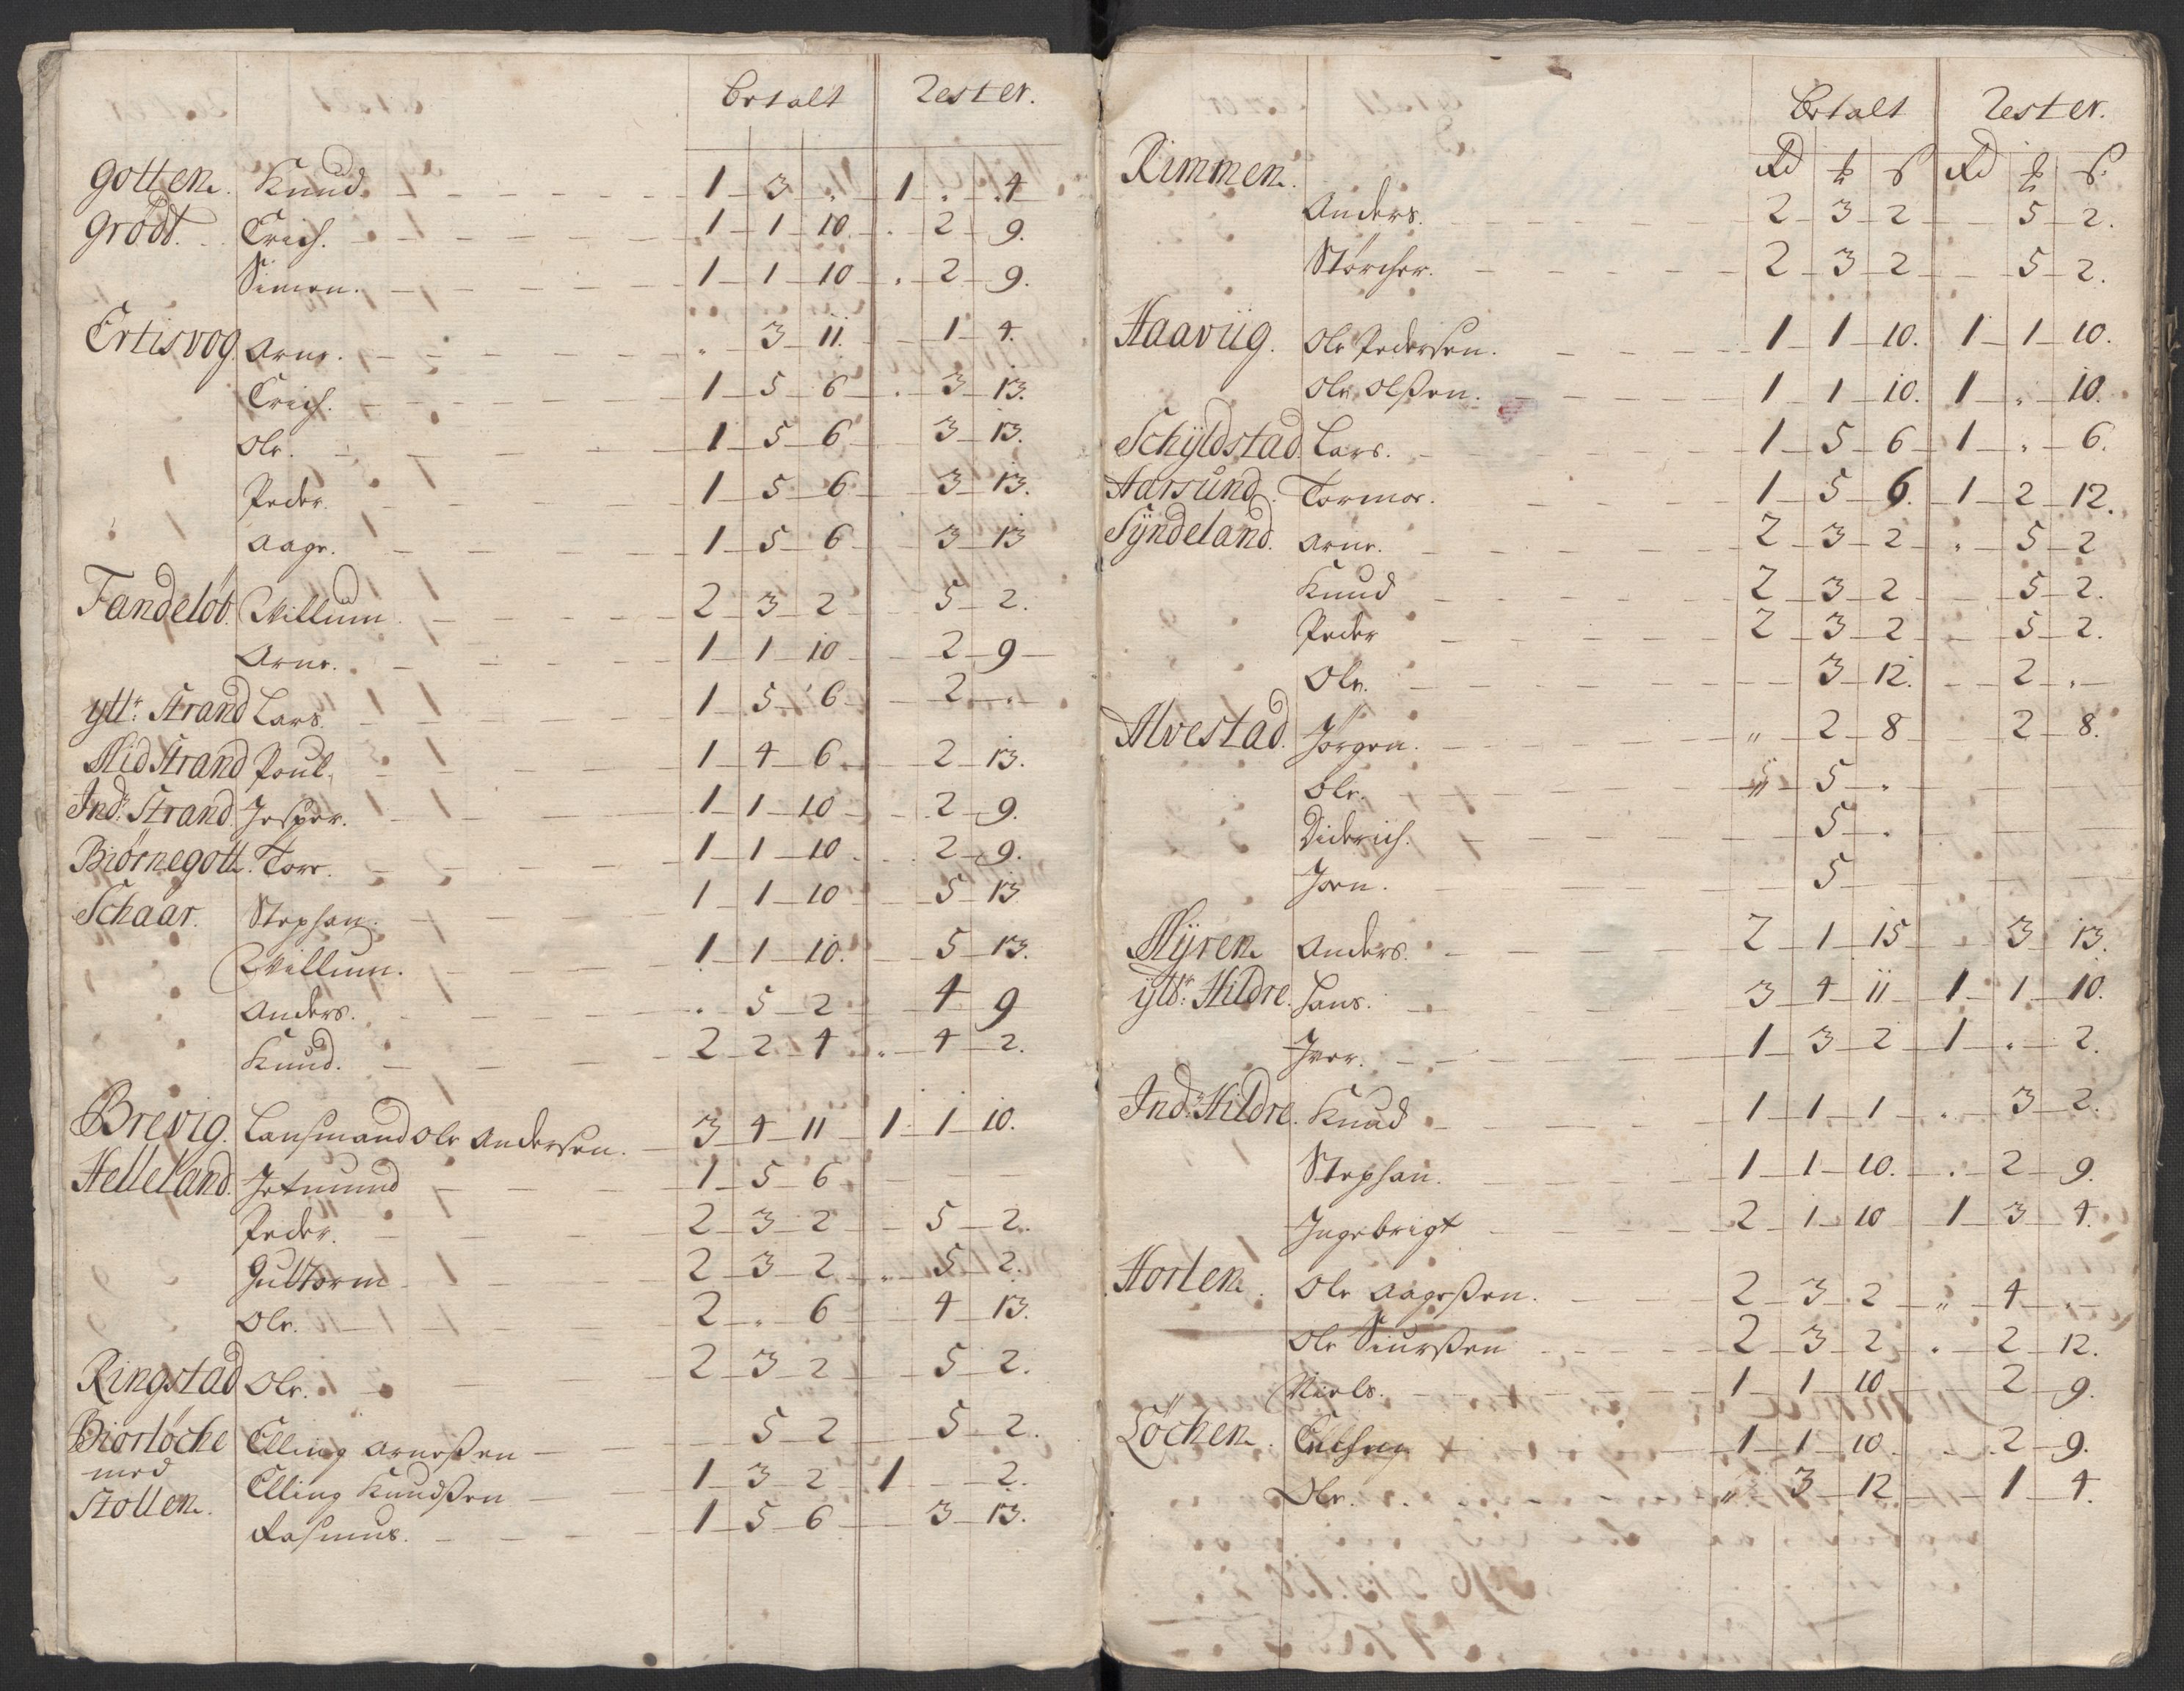 Betalt Rester.
Gotten. Knud. 1 3 . 1 . 4
Grodt. Erich. 1 1 10 . 2 9.
Simen. 1 1 10 . 2 9.
Ertisvog Arne. . 3 11. 1 4.
Erich. 1 5 6 . 3 13.
Ole. 1 5 6 3 13.
Peder. 1 5 6 3 13.
Aage. 1 5 6 3 13
Fandeløb. Willum 2 3 2 5 2.
Arne. 1 1 10 2 9
ytt: Strand Lars 1 5 6 2 .
Mid Strand Poul. 1 4 6 2 13.
Ind: Strand Jesper. 1 1 10 2 9.
Biørnegott. Tore. 1 1 10 2 9.
Schaar. Stephan. 1 1 10 5 13
Willum. 1 1 10. 5 13.
Anders. . 5 2 4 9
Knud. 2 2 4 . 4 2.
Brevig. Lensmand Ole Andersen. 3 4 11 1 1 10.
Helleland. Jetmund 1 5 6
Peder. 2 3 2 5 2.
Guttorm 2 3 2 . 5 2.
Ole. 2 . 6 4 13.
Ringstad Ole. 2 3 2 5 2.
Biorløche Elling Arneßen 5 2 5 2.
med Elling Knudßen 1 3 2 1 2.
Stollen. Rasmus. 1 5 6 3 13.
Betalt Rester.
Rimmen. Rd ß Rd ß.
Anders. 2 3 2 5 2.
Størcher. 2 3 2 5 2.
Haaviig. Ole Pedersen. 1 1 10. 1 1 10.
Ole Olßen. 1 1 10. 1 . 10.
Schyldstad Lars. 1 5 6 1 . 6.
Aarsund. Tormoe. 1 5 6. 1 2 12.
Syndeland. Arne. 2 3 2 . 5 2
Knud 2 3 2 5 2.
Peder 2 3 2 5 2.
Ole. 3 12. 2 .
Alvestad. Jørgen. " 2 8 2 8.
Ole. " 5 .
Diderich. 5 .
Jern. 5
Myren Anders. 2 1 15 3 13.
ytt: Hildre. Hans. 3 4 11 1 1 10.
Iver. 1 3 2 1 . 2.
Ind: Hildre. Knud 1 1 1 . 3 2.
Stephan. 1 1 10. . 2 9.
Ingebrigt 2 1 10 1 3 4.
Horten. Ole Aageßen. 2 3 2 " 4 .
Ole Siurßen 2 3 2 . 2 12.
Niels. 1 1 10 2 9.
Løchen. 1 1 10 2 9.
Ole. " 3 12 1 4.